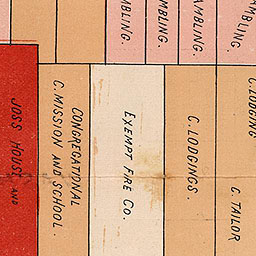 MBLING.
MBLING.
AMBLING.
AMBLING.
JOSS HOUSE AND
CONGREGATIONAL
C. MISSION AND SCHOOL.
EXEMPT FIRE CO.
C. LODGINGS.
C. LODGING
C. TAILOR